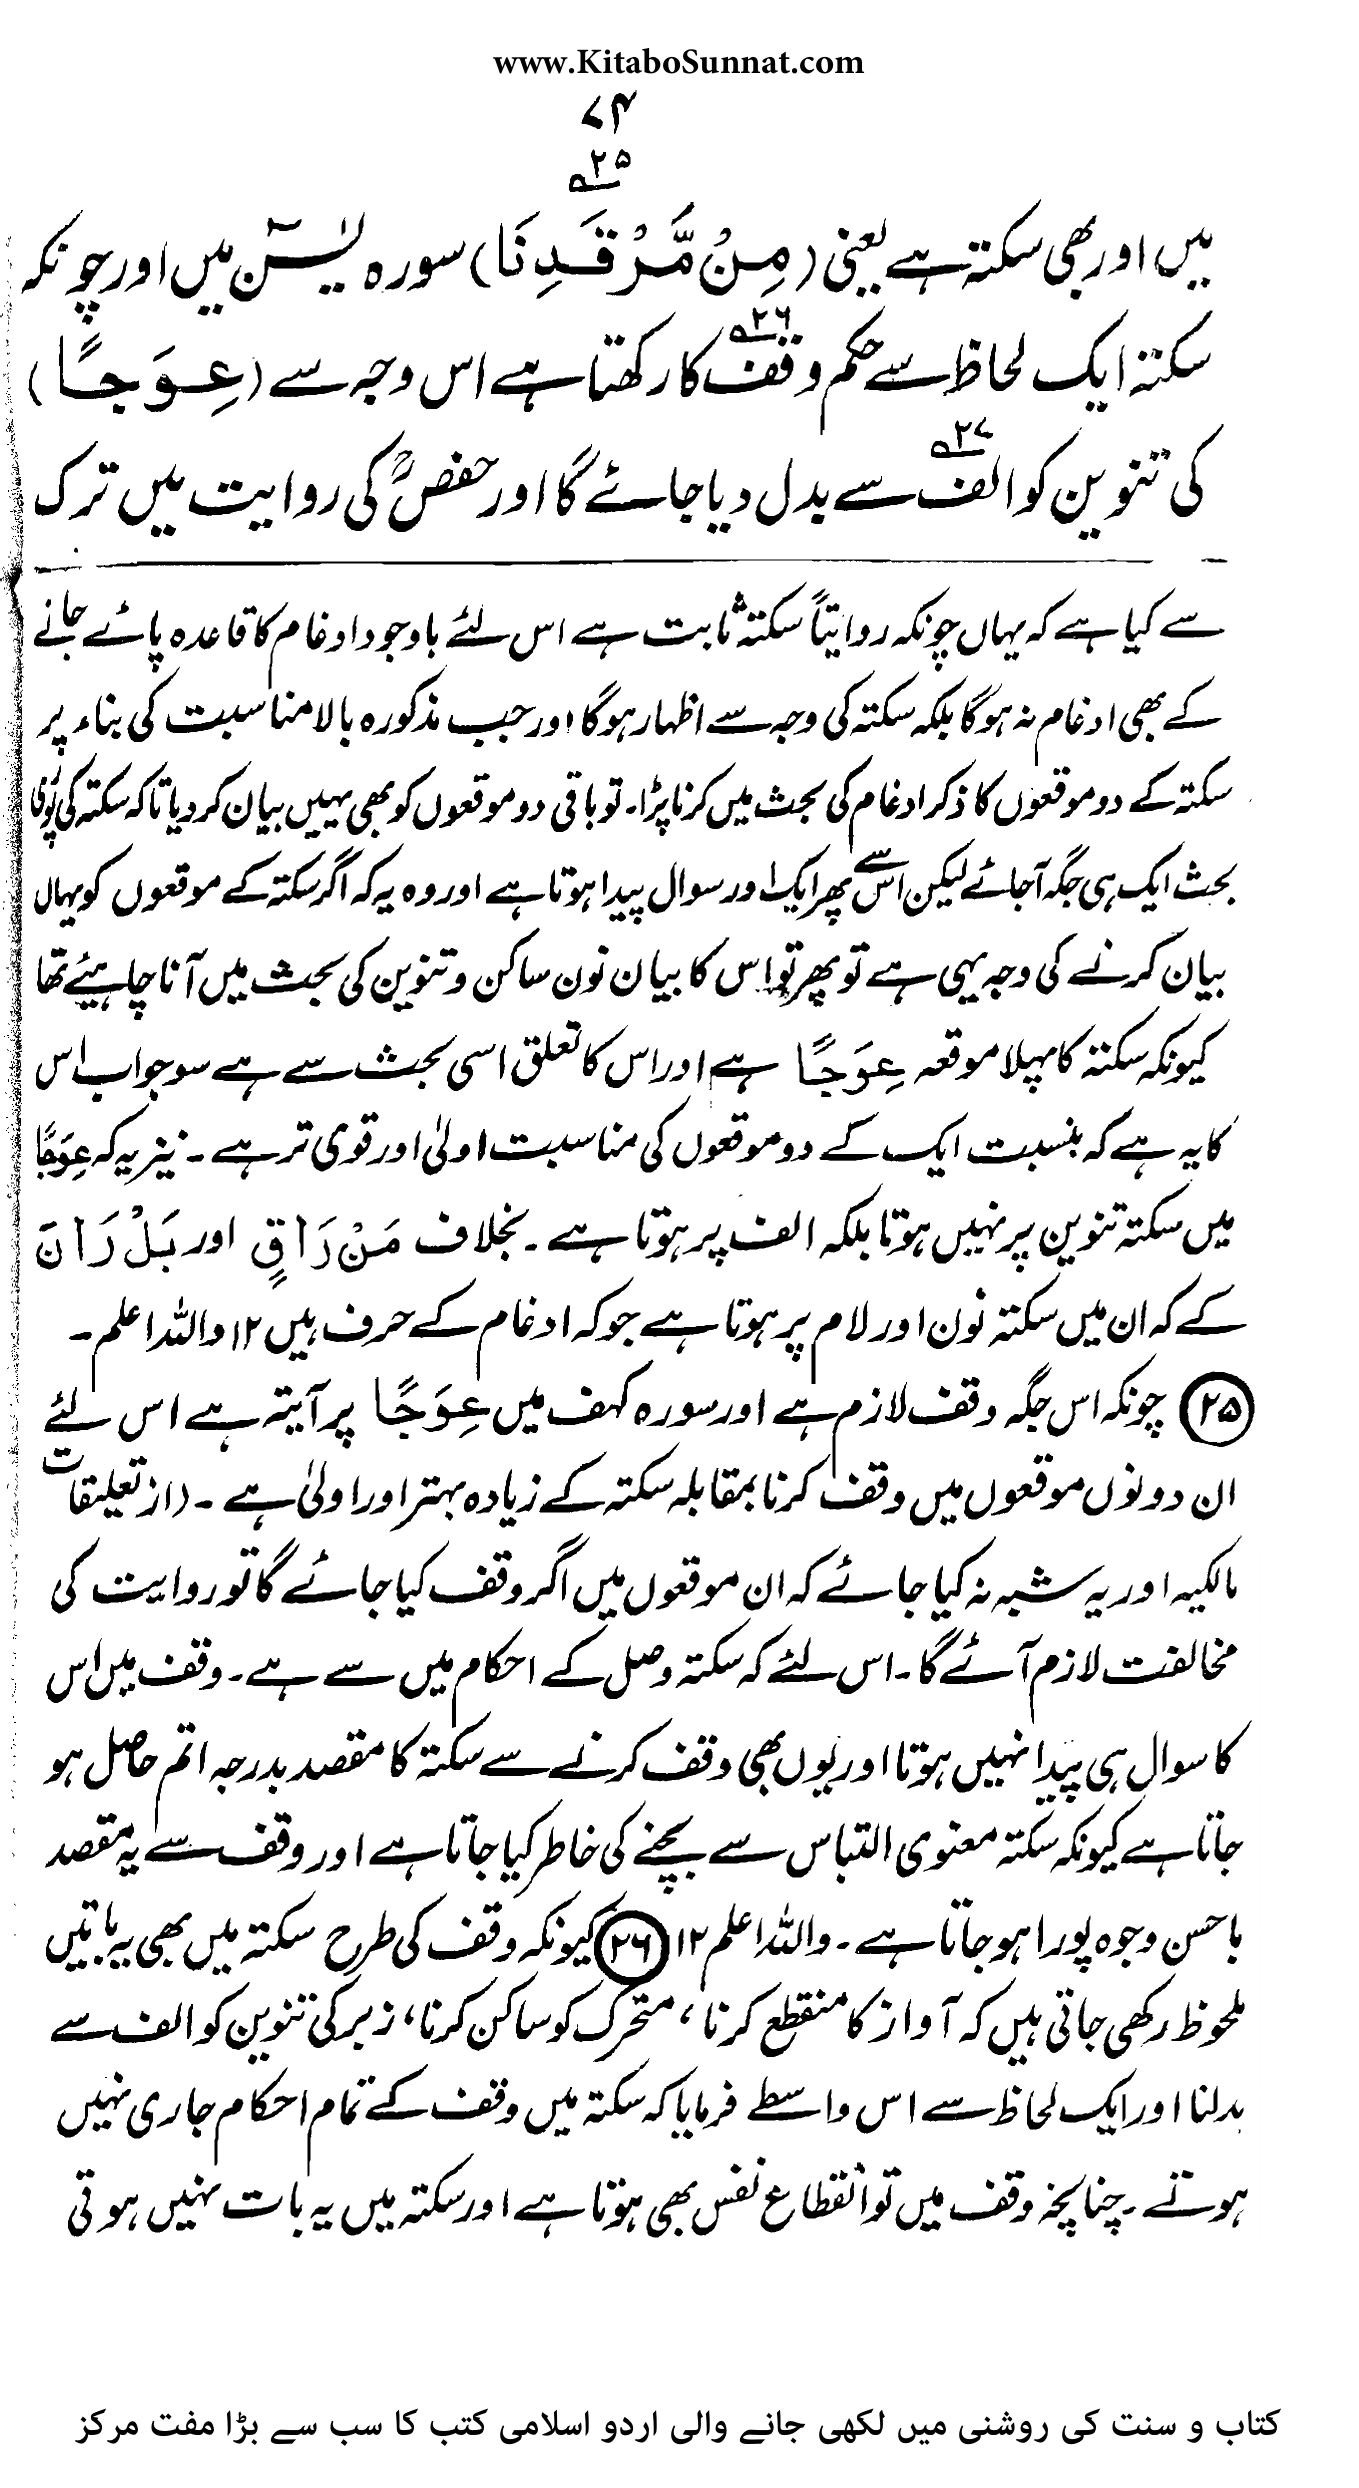 www.KitaboSunnat.com
۷۴
۲۵
میں اور بھی سکتہ ہے یعنی (مِنْ مَّرْقَدِنَا) سورہ یٰسٓن میں اور چونکہ
سکتہ ایک لحاظ سے حکم وقف ۲۶ کا رکھتا ہے اس وجہ سے (عِوَجًا)
کی تنوین کو الف ۲۷ سے بدل دیا جائے گا اور حفصؒ کی روایت میں ترک
سے کیا ہے کہ یہاں چونکہ روایتاً سکتہ ثابت ہے اس لئے باوجود ادغام کا قاعدہ پائے جانے
کے بھی ادغام نہ ہوگا بلکہ سکتہ کی وجہ سے اظہار ہوگا اور جب مذکورہ بالا مناسبت کی بناء پر
سکتہ کے دو موقعوں کا ذکر ادغام کی بحث میں کرنا پڑا۔ تو باقی دو موقعوں کو بھی یہیں بیان کر دیا تاکہ سکتہ کی پوری
بحث ایک ہی جگہ آجائے لیکن اس سے پھر ایک اور سوال پیدا ہوتا ہے اور وہ یہ کہ اگر سکتہ کے موقعوں کو یہاں
بیان کرنے کی وجہ یہی ہے تو پھر تو اس کا بیان نون ساکن و تنوین کی بحث میں آنا چاہیئے تھا
کیونکہ سکتہ کا پہلا موقعہ عِوَجًا ہے اور اس کا تعلق اسی بحث سے ہے سو جواب اس
کا یہ ہے کہ بنسبت ایک کے دو موقعوں کی مناسبت اولیٰ اور قوی تر ہے۔ نیز یہ کہ عِوَجًا
میں سکتہ تنوین پر نہیں ہوتا بلکہ الف پر ہوتا ہے۔ بخلاف مَنْ رَاقٍ اور بَلْ رَانَ
کے کہ ان میں سکتہ نون اور لام پر ہوتا ہے جو کہ ادغام کے حرف ہیں ۱۲ واللہ اعلم۔
(۲۵) چونکہ اس جگہ وقف لازم ہے اور سورہ کہف میں عِوَجًا پر آیتہ ہے اس لئے
ان دونوں موقعوں میں وقف کرنا بمقابلہ سکتہ کے زیادہ بہتر اور اولیٰ ہے۔ (از تعلیقات
مالکیہ اور یہ شبہ نہ کیا جائے کہ ان موقعوں میں اگر وقف کیا جائے گا تو روایت کی
مخالفت لازم آئے گا۔ اس لئے کہ سکتہ وصل کے احکام میں سے ہے۔ وقف میں اس
کا سوال ہی پیدا نہیں ہوتا اور یوں بھی وقف کرنے سے سکتہ کا مقصد بدرجہ اتم حاصل ہو
جاتا ہے کیونکہ سکتہ معنوی التباس سے بچنے کی خاطر کیا جاتا ہے اور وقف سے یہ مقصد
باحسن وجوہ پورا ہو جاتا ہے۔ واللہ اعلم ۱۲ (۲۶) کیونکہ وقف کی طرح سکتہ میں بھی یہ باتیں
ملحوظ رکھی جاتی ہیں کہ آواز کا منقطع کرنا، متحرک کو ساکن کرنا، زبر کی تنوین کو الف سے
بدلنا اور ایک لحاظ سے اس واسطے فرمایا کہ سکتہ میں وقف کے تمام احکام جاری نہیں
ہوتے۔ چنانچہ وقف میں تو انقطاع نفس بھی ہوتا ہے اور سکتہ میں یہ بات نہیں ہوتی
کتاب و سنت کی روشنی میں لکھی جانے والی اردو اسلامی کتب کا سب سے بڑا مفت مرکز